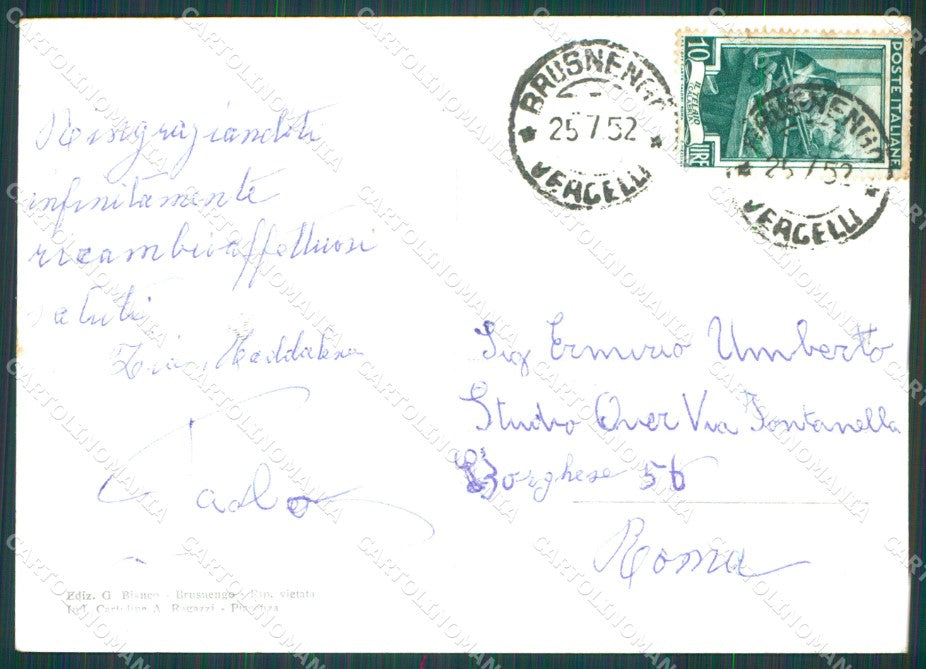 Risigraziandoti
infinitamente
ricambio affettuosi
saluti
Zia Maddalena
Paolo
Ediz. G. Bianco - Brusnengo - Rip. vietata
Ind. Cartoline A. Ragazzi - Piacenza
BRUSNENGO
25 7 52
VERCELLI
10
LIRE
POSTE ITALIANE
BRUSNENGO
25 7 52
VERCELLI
Sig Ermirio Umberto
Studio Over Via Fontanella
Borghese 56
Roma
CARTOLINOMANIA